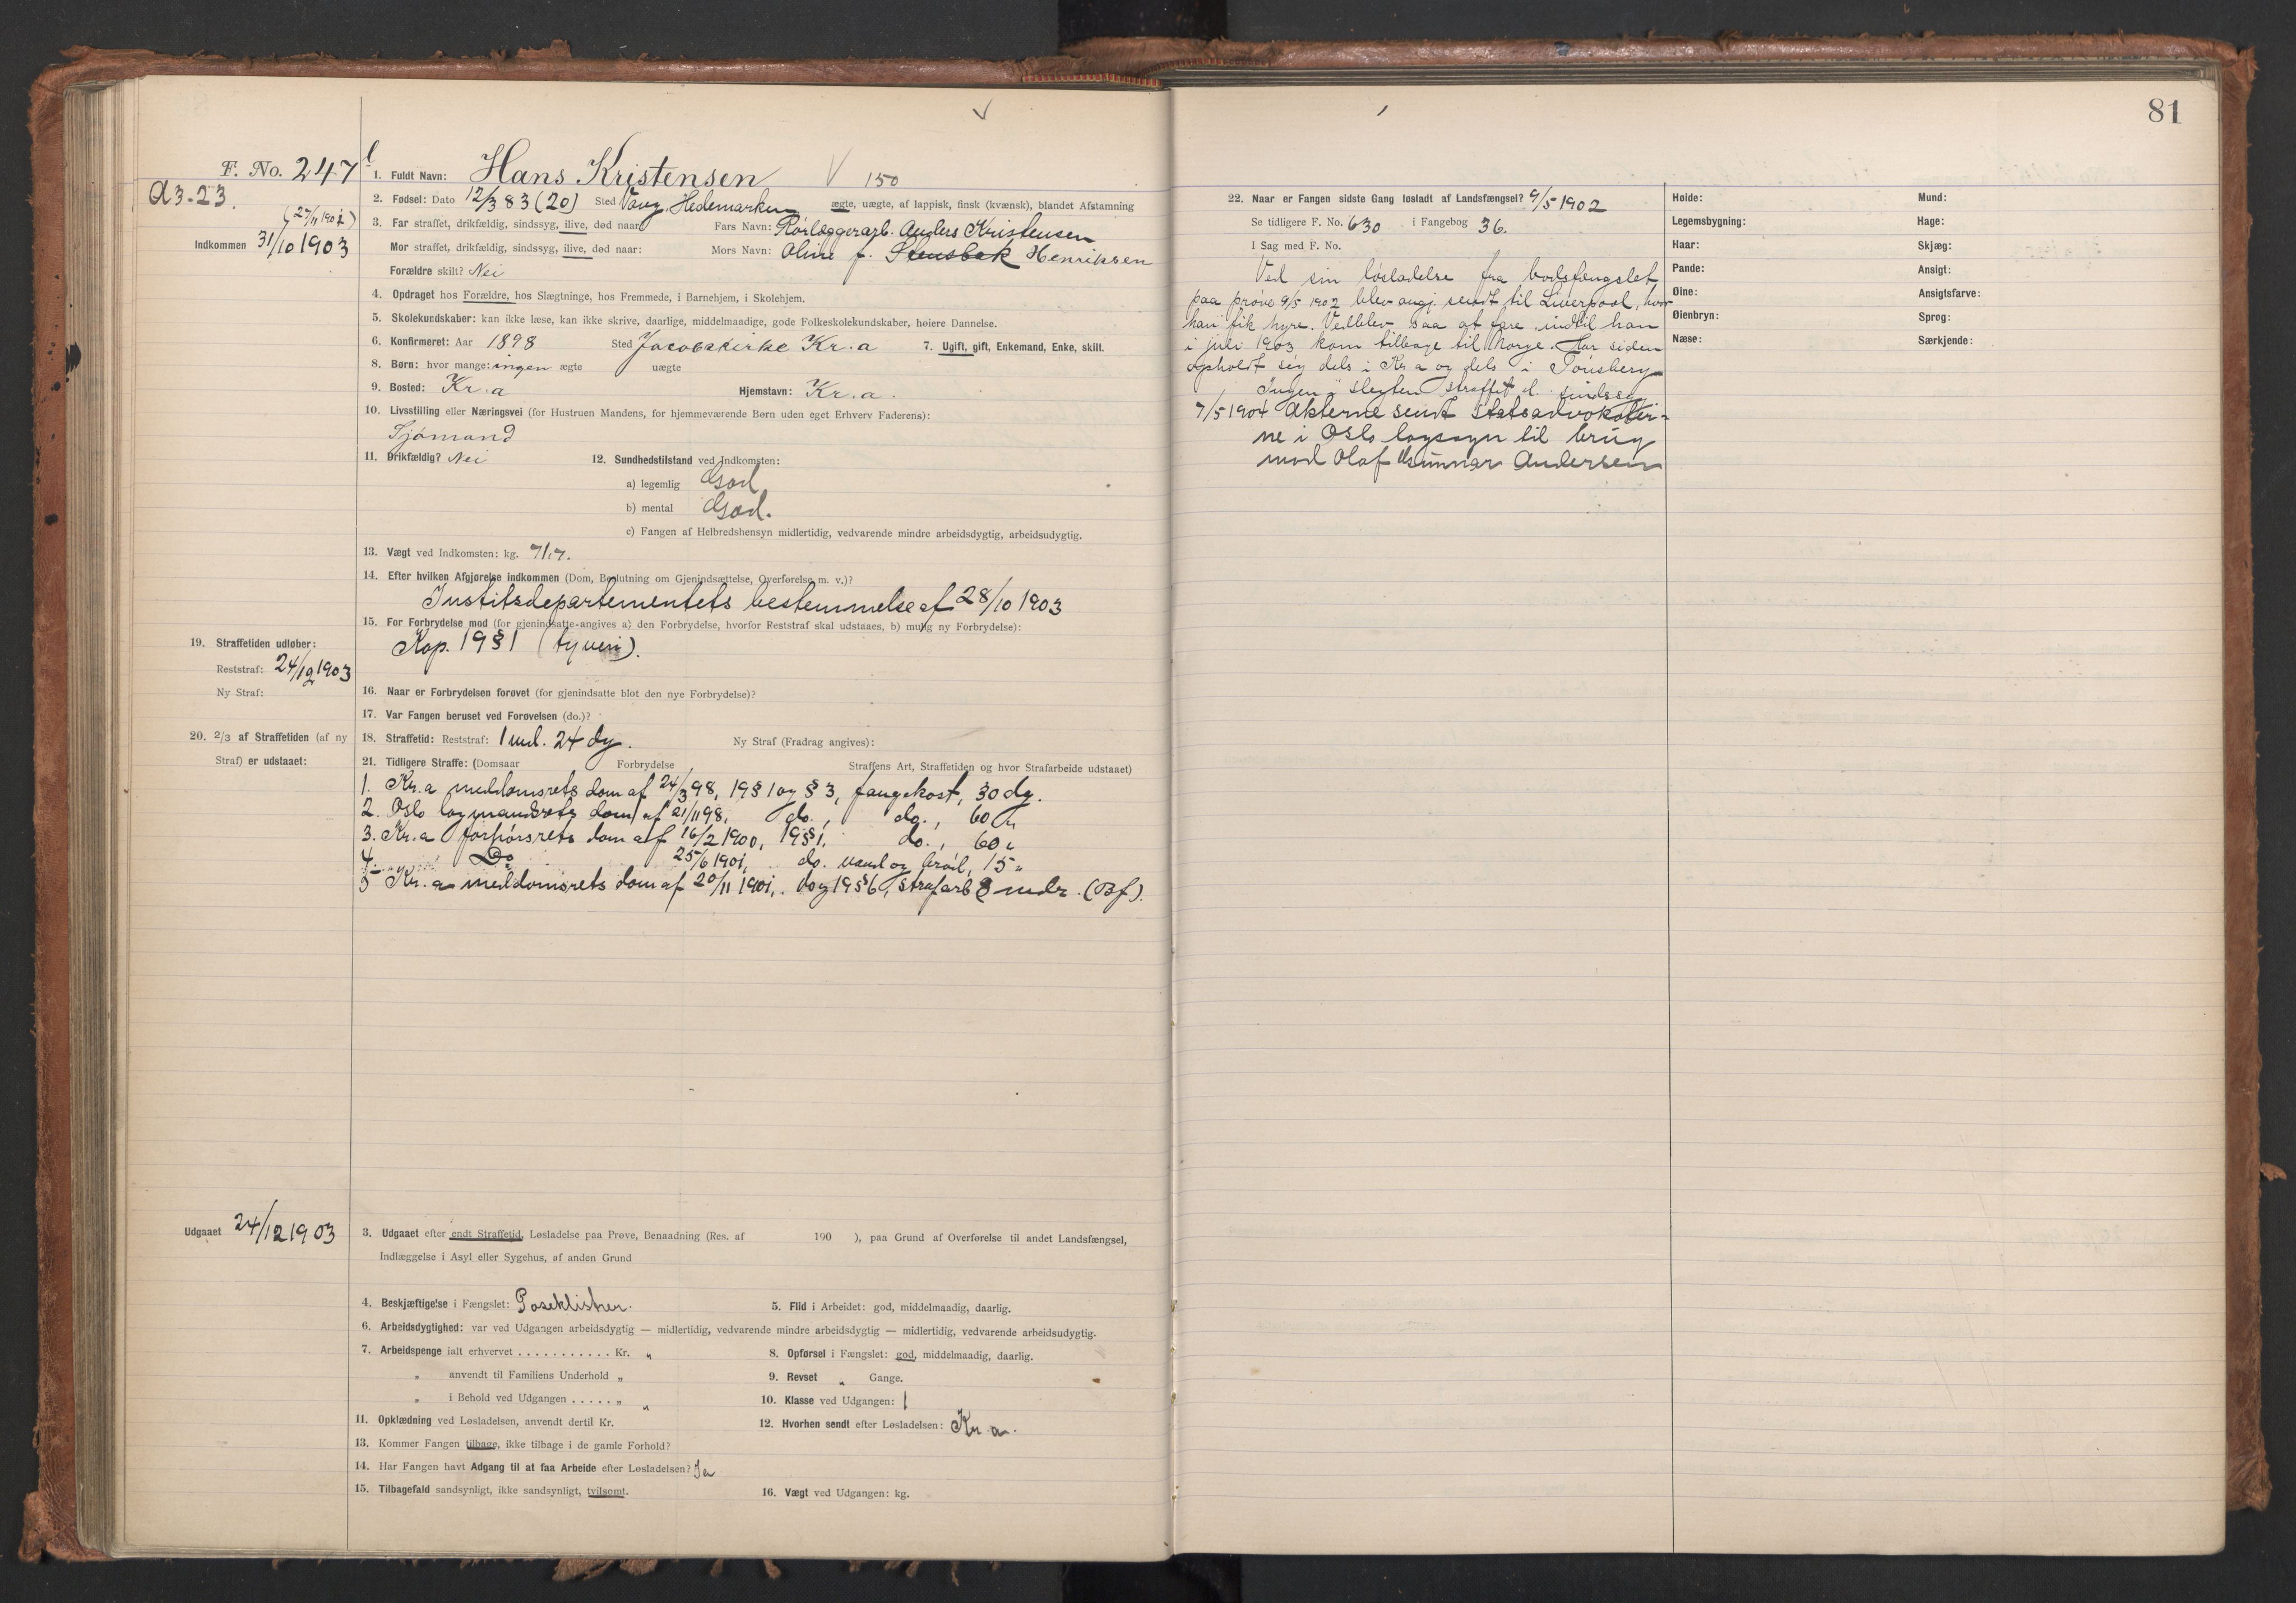 81
F. No. 247
A3-23.
(27/11 1901)
Indkommen 31/10 1903
1. Fuldt Navn: Hans Kristensen 150
2. Fødsel: Dato 12/3 83 (20) Sted Vang, Hedemarken ægte, uægte, af lappisk, finsk (kvænsk), blandet Afstamning
3. Far straffet, drikfældig, sindssyg, ilive, død naar: Fars Navn: Rørlæggerarb. Anders Kristensen
Mor straffet, drikfældig, sindssyg, ilive, død naar: Mors Navn: Oline f. Stensbak Henriksen
Forældre skilt? Nei
4. Opdraget hos Forældre, hos Slægtninge, hos Fremmede, i Barnehjem, i Skolehjem.
5. Skolekundskaber: kan ikke læse, kan ikke skrive, daarlige, middelmaadige, gode Folkeskolekundskaber, høiere Dannelse.
6. Konfirmeret: Aar 1898 Sted Jacobskirke Kr.a 7. Ugift, gift, Enkemand, Enke, skilt.
8. Børn: hvor mange: ingen ægte uægte
9. Bosted: Kr.a Hjemstavn: Kr.a.
10. Livsstilling eller Næringsvei (for Hustruen Mandens, for hjemmeværende Børn uden eget Erhverv Faderens):
Sjømand
11. Drikfældig? Nei 12. Sundhedstilstand ved Indkomsten:
a) legemlig God
b) mental God.
c) Fangen af Helbredshensyn midlertidig, vedvarende mindre arbeidsdygtig, arbeidsudygtig.
13. Vægt ved Indkomsten: kg. 71,7.
14. Efter hvilken Afgjørelse indkommen (Dom, Beslutning om Gjenindsættelse, Overførelse m. v.)?
Justitsdepartementets bestemmelse af 28/10 1903
15. For Forbrydelse mod (for gjenindsatte angives a) den Forbrydelse, hvorfor Reststraf skal udstaaes, b) mulig ny Forbrydelse):
Kap. 19 § 1 (tyveri).
19. Straffetiden udløber:
Reststraf: 24/12 1903
Ny Straf:
16. Naar er Forbrydelsen forøvet (for gjenindsatte blot den nye Forbrydelse)?
17. Var Fangen beruset ved Forøvelsen (do.)?
20. 2/3 af Straffetiden (af ny
Straf) er udstaaet:
18. Straffetid: Reststraf: 1 md. 24 dg. Ny Straf (Fradrag angives):
21. Tidligere Straffe: (Domsaar Forbrydelse Straffens Art, Straffetiden og hvor Strafarbeide udstaaet)
1. Kr.a meddomsrets dom af 24/3 98, 19 § 1 og § 3, fangekost, 30 dg.
2. Oslo lagmandsrets dom af 21/11 98, do., do., 60 "
3. Kr.a forhørsrets dom af 16/2 1900, 19 § 1, do., 60 "
4. Do 25/6 1901, do. vand og brød, 15 "
5 Kr.a meddomsrets dom af 20/11 1901, do og 19 § 6, strafarb 8 mdr. (Bf).
Udgaaet 24/12 1903
3. Udgaaet efter endt Straffetid, Løsladelse paa Prøve, Benaadning (Res. af 190 ), paa Grund af Overførelse til andet Landsfængsel,
Indlæggelse i Asyl eller Sygehus, af anden Grund
4. Beskjæftigelse i Fængslet: Poseklistrer. 5. Flid i Arbeidet: god, middelmaadig, daarlig.
6. Arbeidsdygtighed: var ved Udgangen arbeidsdygtig — midlertidig, vedvarende mindre arbeidsdygtig — midlertidig, vedvarende arbeidsudygtig.
7. Arbeidspenge ialt erhvervet . . . . . . . . . . . Kr. " 8. Opførsel i Fængslet: god, middelmaadig, daarlig.
" anvendt til Familiens Underhold " 9. Revset " Gange.
" i Behold ved Udgangen . . . . . " " 10. Klasse ved Udgangen: 1
11. Opklædning ved Løsladelsen, anvendt dertil Kr. 12. Hvorhen sendt efter Løsladelsen: Kr a.
13. Kommer Fangen tilbage, ikke tilbage i de gamle Forhold?
14. Har Fangen havt Adgang til at faa Arbeide efter Løsladelsen? Ja
15. Tilbagefald sandsynligt, ikke sandsynligt, tvilsomt. 16. Vægt ved Udgangen: kg.
22. Naar er Fangen sidste Gang løsladt af Landsfængsel? 9/5 1902
Se tidligere F. No. 630 i Fangebog 36.
I Sag med F. No.
Ved sin løsladelse fra bodsfængslet
paa prøve 9/5 1902 blev angj. sendt til Liverpool, hvor
han fik hyre. Vedblev saa at fare indtil han
i juli 1903 kom tilbage til Norge. Har siden
opholdt sig dels i Kr.a og dels i Tønsberg
Ingen i slegten straffet el. sindssyg
7/5 1904 Akterne sendt statsadvokater-
ne i Oslo lagsogn til brug
mod Olaf Gunnar Andersen
Høide: Mund:
Legemsbygning: Hage:
Haar: Skjæg:
Pande: Ansigt:
Øine: Ansigtsfarve:
Øienbryn: Sprog:
Næse: Særkjende: